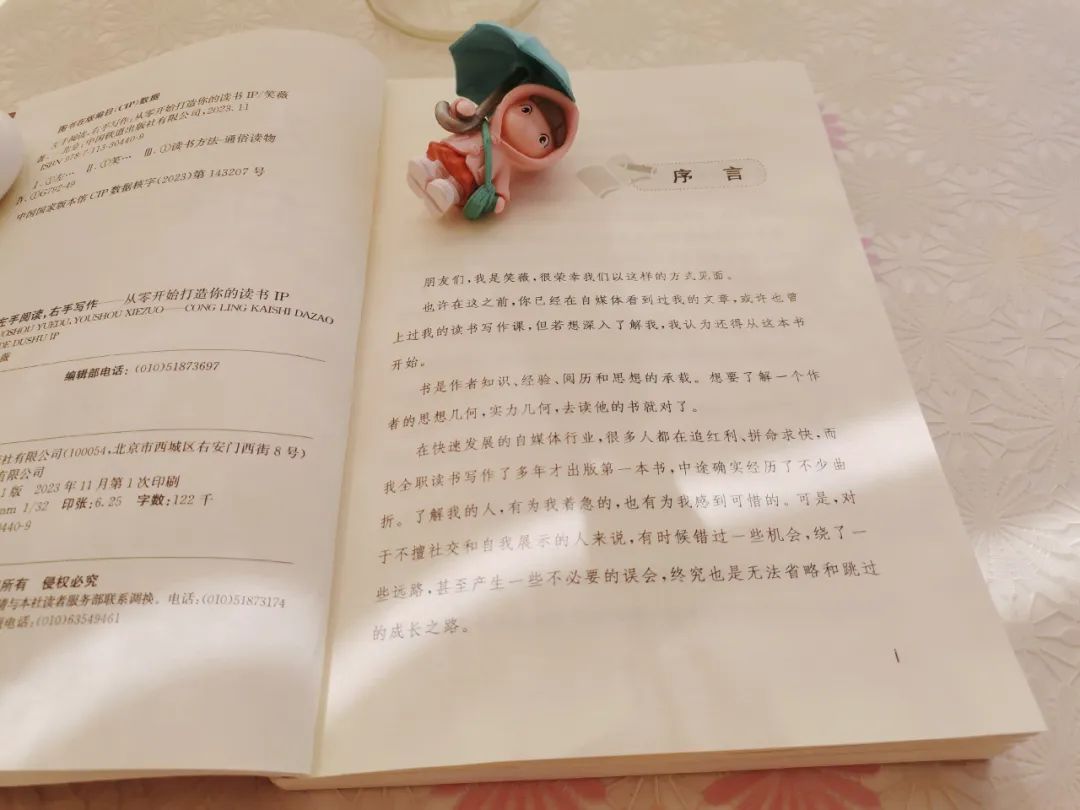 图书在版编目(CIP)数据
左手阅读,右手写作:从零开始打造你的读书 IP/笑薇
著.—北京:中国铁道出版社有限公司,2023.11
ISBN 978-7-113-30440-9
Ⅰ.①左… Ⅱ.①笑… Ⅲ.①读书方法-通俗读物
Ⅳ.①G792-49
中国国家版本馆 CIP 数据核字(2023)第 143207 号
左手阅读,右手写作——从零开始打造你的读书 IP
OSHOU YUEDU, YOUSHOU XIEZUO——CONG LING KAISHI DAZAO
DE DUSHU IP
薇
编辑部电话:(010)51873697
社有限公司(100054,北京市西城区右安门西街 8 号)
有限公司
1 版 2023 年 11 月第 1 次印刷
mm 1/32 印张:6.25 字数:122 千
440-9
所有 侵权必究
请与本社读者服务部联系调换。电话:(010)51873174
电话:(010)63549461
序 言
朋友们,我是笑薇,很荣幸我们以这样的方式见面。
也许在这之前,你已经在自媒体看到过我的文章,或许也曾
上过我的读书写作课,但若想深入了解我,我认为还得从这本书
开始。
书是作者知识、经验、阅历和思想的承载。想要了解一个作
者的思想几何,实力几何,去读他的书就对了。
在快速发展的自媒体行业,很多人都在追红利、拼命求快,而
我全职读书写作了多年才出版第一本书,中途确实经历了不少曲
折。了解我的人,有为我着急的,也有为我感到可惜的。可是,对
于不擅社交和自我展示的人来说,有时候错过一些机会,绕了一
些远路,甚至产生一些不必要的误会,终究也是无法省略和跳过
的成长之路。
i